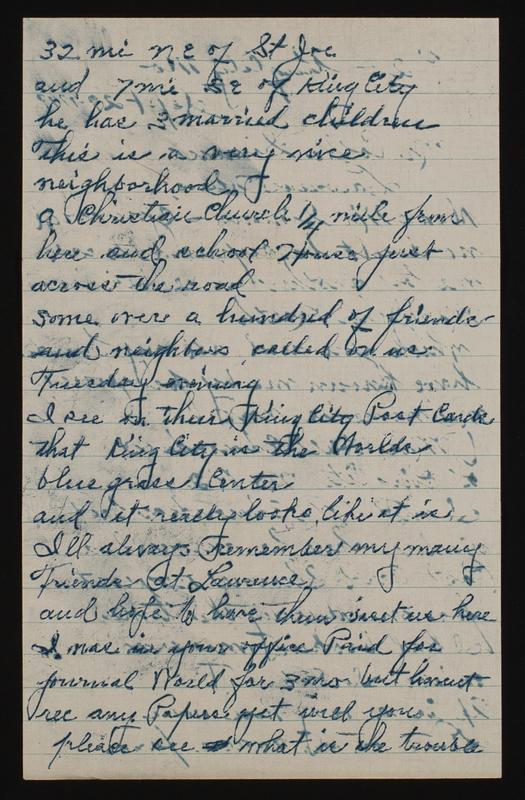 32 mi N E of St Joe
and 7 mi SE of King City
he has 3 married children
This is a very nice
neighborhood
a Christian Church 1/4 mile from
here and school House just
across the road
some over a hundred of friends
and neighbors called on us
Tuesday evening
I see on their King City Post Cards
that King City is the Worlds
blue grass Center
and it realy looks like it is
I'll always remember my many
Friends at Lawrence
and hope to have them visit us here
I was in your office Paid for
Journal World for 3 mo but havent
rec any Papers yet will you
please see what is the trouble